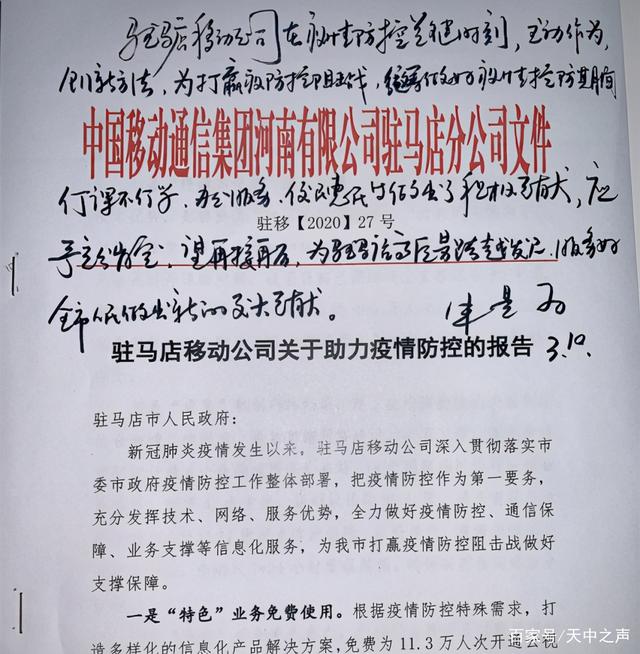 驻马店移动公司在疫情防控关键时刻，主动作为，
创新方法，为打赢疫防控阻击战，做好疫情控防期间
中国移动通信集团河南有限公司驻马店分公司文件
停课不停学、办公服务、便民惠民作出了积极贡献，应
驻移【2020】27 号
予充分肯定，望再接再厉，为驻马店高质量跨越发展、服务好
全市人民做出新的更大贡献。
3.10.
驻马店移动公司关于助力疫情防控的报告
驻马店市人民政府：
新冠肺炎疫情发生以来，驻马店移动公司深入贯彻落实市
委市政府疫情防控工作整体部署，把疫情防控作为第一要务，
充分发挥技术、网络、服务优势，全力做好疫情防控、通信保
障、业务支撑等信息化服务，为我市打赢疫情防控阻击战做好
支撑保障。
一是“特色”业务免费使用。根据疫情防控特殊需求，打
造多样化的信息化产品解决方案，免费为 11.3 万人次开通云视
百家号/天中之声